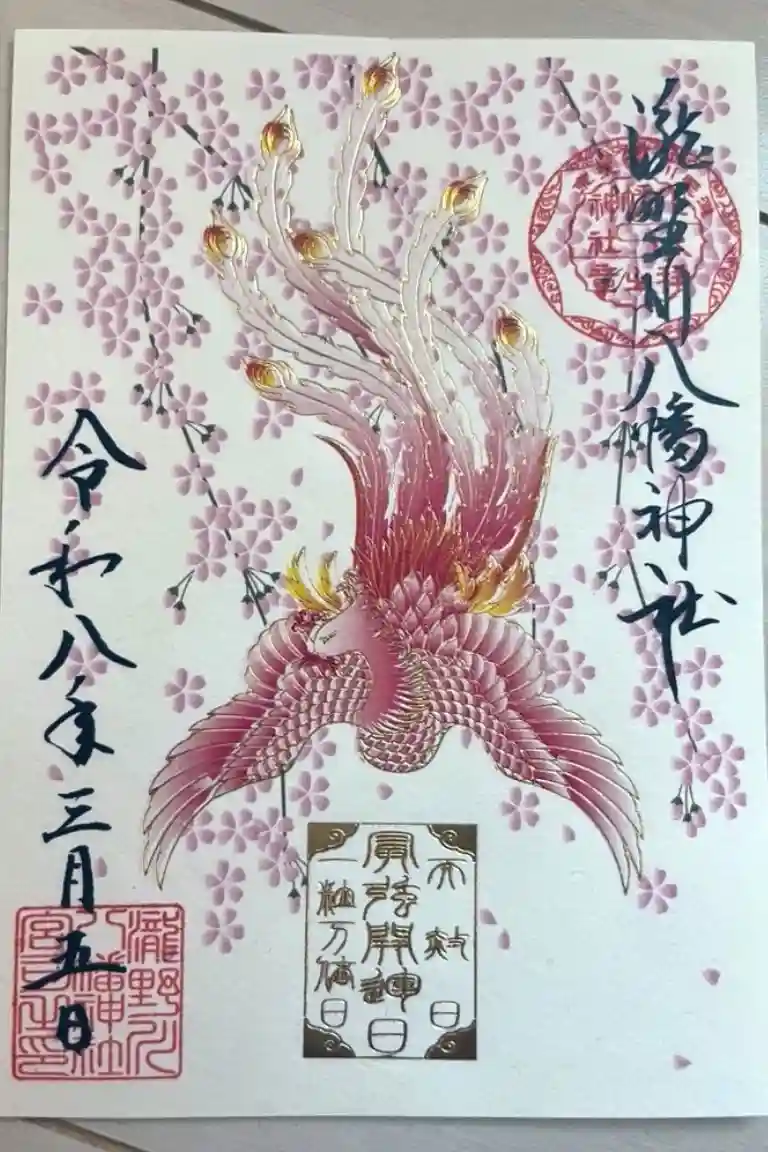 瀧野川八幡神社
天赦日
寅弥開運日
一粒万倍日
令和八年三月五日
瀧野川
八幡神社
宮司之印